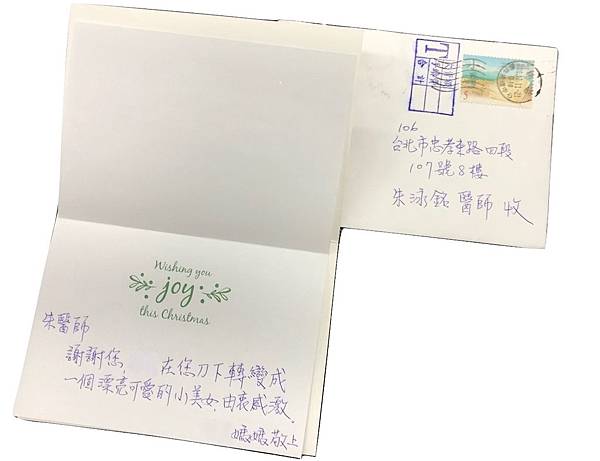 T
5
106
台北市忠孝東路四段
107號8樓
朱泳銘 醫師 收
Wishing you
joy
this Christmas
朱醫師
謝謝您 在您刀下轉變成
一個漂亮可愛的小美女,由衷感激。
媽媽敬上